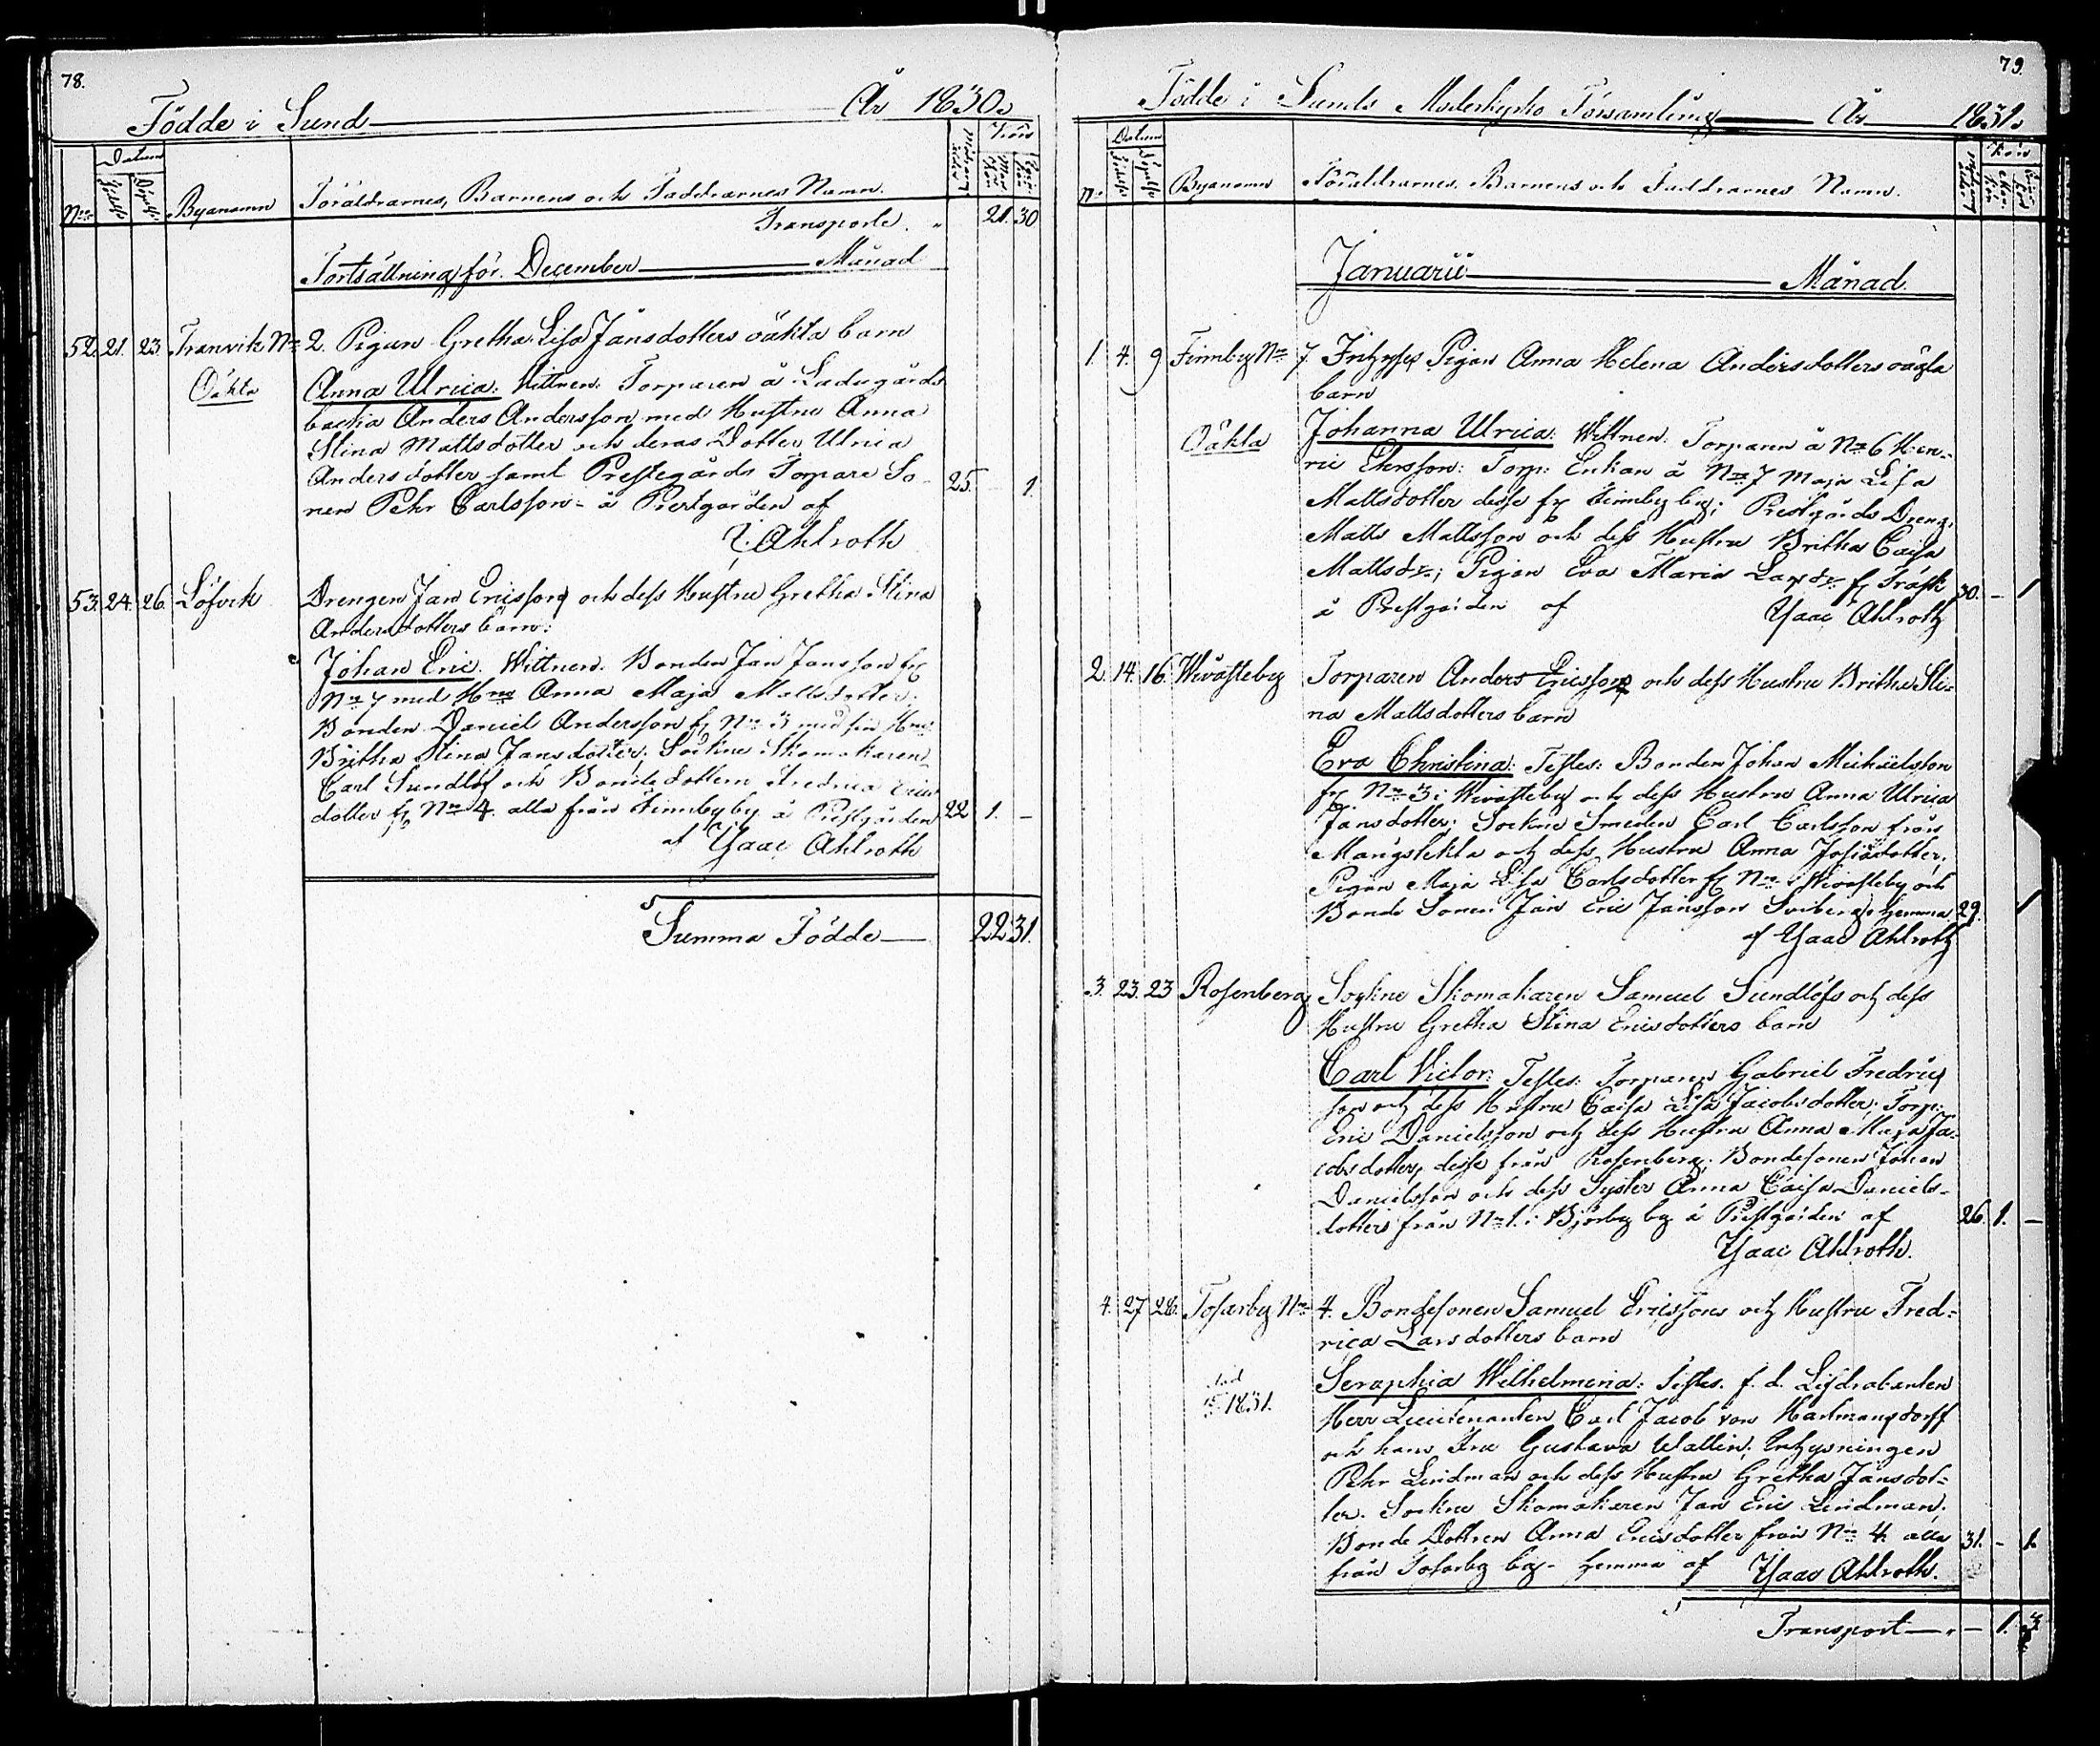 78.
Födde i Sund År 1830.
No Datum Födelse Döpelse Byanamn Föräldrarnes, Barnens och Faddrarnes Namn. Modrens ålder Kön Man Kön Qvin Kön
Transporte. " 21. 30
Fortsättning för December Månad
52. 21. 23. Tranvik No 2. Pigan Gretha Lisa Jansdotters oäkta barn
Oäkta Anna Ulrica: Wittnen: Torparen å Ladugårds
backa Anders Andersson med Hustru Anna
Stina Mattsdotter och deras Dotter Ulrica
Andersdotter samt Prestegårds Torpare So-
nen Pehr Carlsson - å Prestgården af 25. 1.
I. Ahlroth
53. 24. 26. Löfvik Drengen Jan Ericssons och dess Hustru Gretha Stina
Andersdotters barn:
Johan Eric. Wittnen. Bonden Jan Jansson fr
No 7 med Hru Anna Maja Mattsdotter.
Bonden Daniel Andersson fr No 3 med sin Hru
Britha Stina Jansdotter; Sockne Skomakaren
Carl Sundlöf och Bondedottern Fredrica Erics
dotter fr No 4. alla från Finnby by å Prestgården 22 1. -
af Isaac Ahlroth
Summa Födde 22 31.
79.
Födde i Sunds Moderkyrko Församling År 1831.
No Datum Födelse Döpelse Byanamn Föräldrarnes, Barnens och Faddrarnes Namn. Modrens ålder Kön
Januarii Månad.
1. 4. 9 Finnby No 7 Inhyses Pigan Anna Helena Andersdotters oägta
barn
Oäkta Johanna Ulrica: Wittnen: Torparen å No 6 Hen-
ric Ehrsson: Torp: Enkan å No 7 Maja Lisa
Mattsdotter desse fr Finnby by; Prestgårds Dreng.
Matts Mattsson och dess Hustru Britha Caisa
Mattsdr; Pigan Eva Maria Larsdr fr Träsk
å Prestgården af Isaac Ahlroth 30. - 1
2. 14. 16 Wivasteby Torparen Anders Ericssons och dess Hustru Britha Sti-
na Mattsdotters barn
Eva Christina: Testes: Bonden Johan Michielsson
fr No 3 i Wivasteby och dess Hustru Anna Ulrica
Jansdotter; Sockne Smeden Carl Carlsson från
Mångstekta och dess Hustru Anna Josiädotter;
Pigan Maja Lisa Carlsdotter fr No Wivasteby och
Bonde Sonen Jan Eric Jansson Sviberg, hemma 29. 1
af Isaac Ahlroth
3. 23. 23 Rosenberg Sockne Skomakaren Samuel Sundlöfs och dess
Hustru Gretha Stina Ericsdotters barn
Carl Victor: Testes: Torparen Gabriel Fredrics
son och dess Hustru Caisa Lisa Jacobsdotter; Torp:
Eric Danielsson och dess Hustru Anna Maja Ja-
cobsdotter, desse från Rosenberg; Bondesonen Johan
Danielsson och dess Syster Anna Caisa Daniels-
dotter från No 1. i Björby by å Prestgården af 26. 1. -
Isaac Ahlroth.
4. 27 28. Tosarby No 4. Bondesonen Samuel Ericssons och Hustru Fred-
rica Larsdotters barn
död 1831. Seraphia Wilhelmina: Testes. f. d. Lifdrabanten
Herr Lieutenanten Carl Jacob von Hartmansdorff
och hans Fru Gustava Wallin. Inhysningen
Pehr Lindman och dess Hustru Gretha Jansdot-
ter. Sockne Skomakaren Jan Eric Lindman.
Bonde Dottren Anna Ericsdotter från No 4. alla 31. - 1.
från Tosarby by - hemma af Isaac Ahlroth.
Transport " - 1. 3